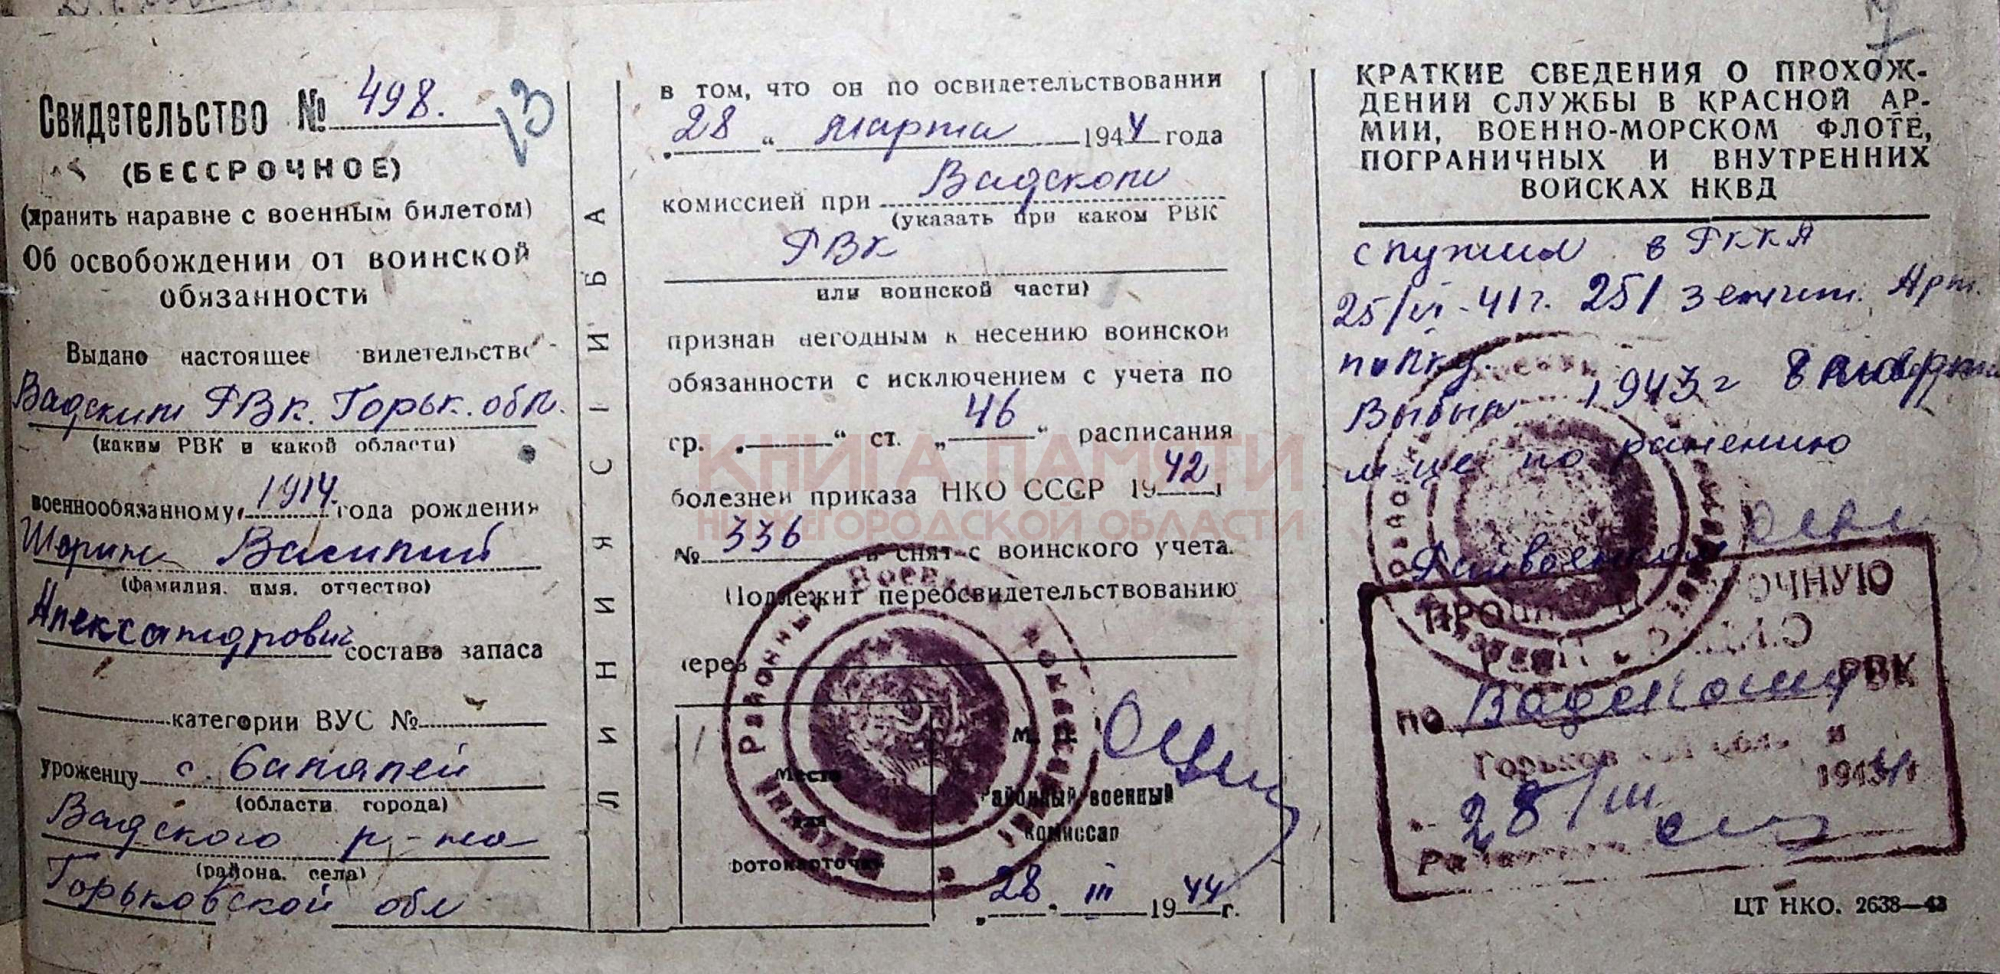 Свидетельство № 498.
13
(БЕССРОЧНОЕ)
(хранить наравне с военным билетом)
Об освобождении от воинской
обязанности
Выдано настоящее свидетельство
Вадским РВК. Горьк. обл.
(каким РВК и какой области)
военнообязанному 1914 года рождения
Шорин Василий
(фамилия, имя, отчество)
Александрович состава запаса
категории ВУС №
уроженцу с.
(области, города)
Вадского р-на
(района, села)
Горьковской обл
ЛИНИЯ СГИБА
в том, что он по освидетельствовании
„28“ марта 1944 года
комиссией при Вадском
(указать при каком РВК
РВК
или воинской части)
признан негодным к несению воинской
обязанности с исключением с учета по
гр. „ “ ст. „46“ расписания
болезней приказа НКО СССР 1942 г
№ 336 и снят с воинского учета.
Подлежит переосвидетельствованию
через
Место
для
фотокарточки
М. П.
Районный военный
комиссар
„28“ III 1944 г.
КРАТКИЕ СВЕДЕНИЯ О ПРОХОЖ-
ДЕНИИ СЛУЖБЫ В КРАСНОЙ АР-
МИИ, ВОЕННО-МОРСКОМ ФЛОТЕ,
ПОГРАНИЧНЫХ И ВНУТРЕННИХ
ВОЙСКАХ НКВД
служил в РККА
25/VI-41г. 251 зенит. Арт.
полку.
Выбыл 1943 г в январе
м-це по ранению
Райвоенком
по Вадскому РВК
Горьковской области
28/III 1944 г
ЦТ НКО. 2638—43
КНИГА ПАМЯТИ
НИЖЕГОРОДСКОЙ ОБЛАСТИ